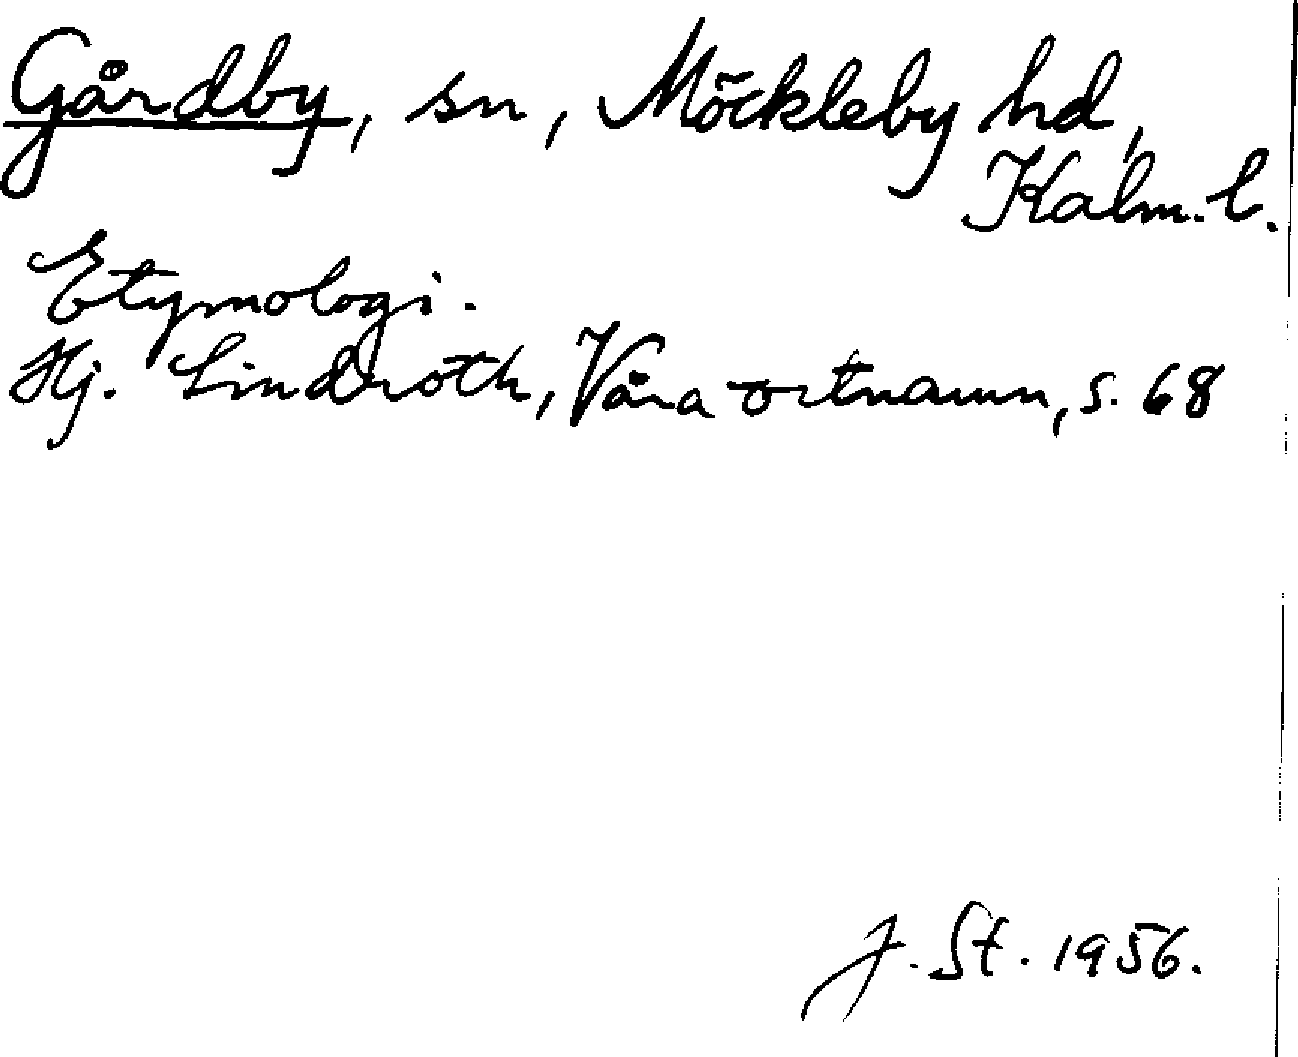 Gårdby, sn, Möckleby hd,
Kalm. l.
Etymologi.
Hj. Lindroth, Våra ortnamn, s. 68
J. St. 1956.